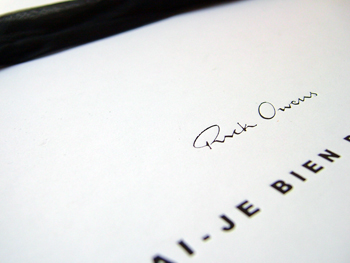 Rick Owens
AI-JE BIEN